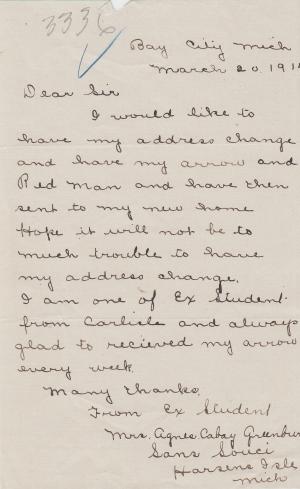 3336
Bay City Mich
March 20. 191
Dear Sir
I would like to
have my address change
and have my arrow and
Red Man and have then
sent to my new home
Hope it will not be to
much trouble to have
my address change.
I am one of Ex Student
from Carlisle and always
glad to recieved my arrow
every week.
Many thanks.
From Ex Student
Mrs. Agnes Cabay
Sans Souci
Harsens Isle
Mich